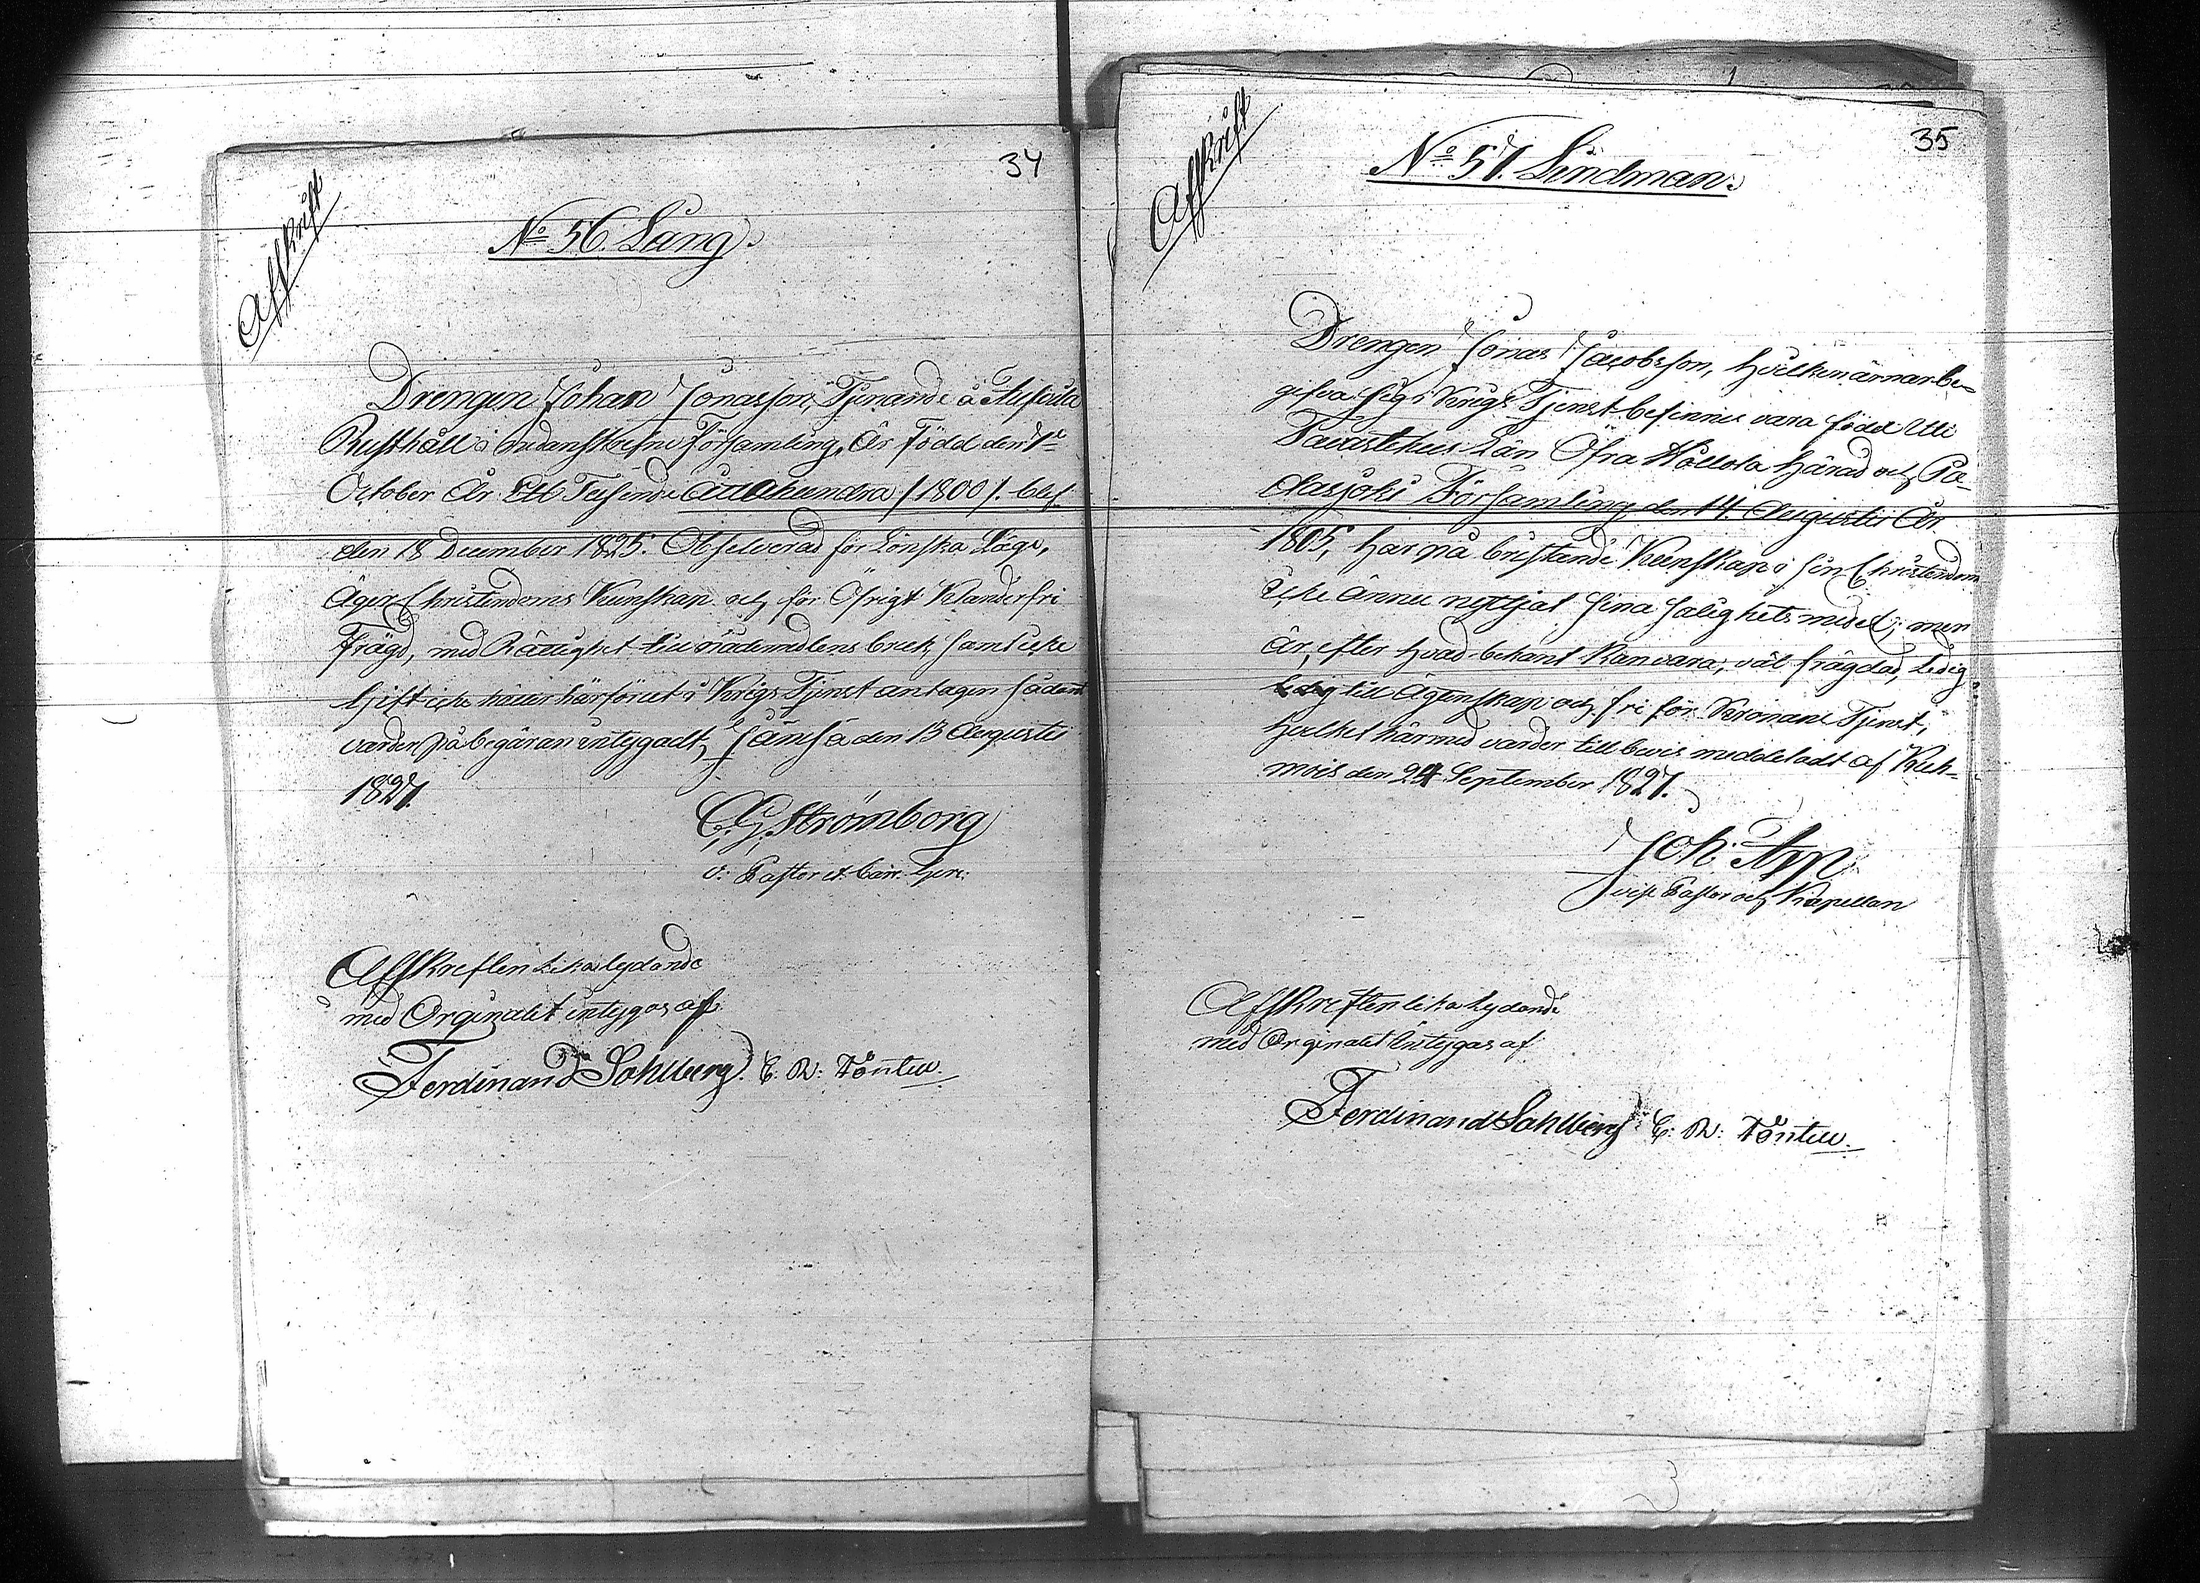 34
Affskrift
No 56. Lång.
Drengen Johan Jonasson, Tjenande å
Rusthåll i nedanskrefne Församling, Är Född den 1e
October År Ett Tusende Åttahundra /1800/. blef
den 18 December 1825. Obselverad för Lönska Läge,
Äger Christendoms Kunskap och för Öfrigt Klanderfri
Frägd, med Rättighet till nådemedlens bruk samt icke
Gift icke häller härförut i Krigs Tjenst antagen sådant
varder på begäran intygadt, Jämsä den 13 Augusti
1827.
C. G. Strömborg
v: Pastor
Affskreften lika lydande
med Orginalet intygas af
Ferdinand Sahlberg. E. R:
35
Affskrift
No 57. Lindman.
Drengen Jonas Jacobsson, hvilken ärnar be-
gifva sig i Krigs Tjenst befinnes vara född uti
Tavastehus Län Öfra Hållola Härad och Pa-
dasjoki Församling den 14. Augusti År
1805, har på bristande Kunskap i sin Christendom
icke ännu nyttjat sina salighets medel; men
är, efter hvad bekant kan vara, väl frägdad, Ledig
till Ägtenskap och fri för Kronans Tjenst,
hvilket härmed varder till bevis meddeladt af Kuh-
mois den 24 September 1827.
Joh: App
vise Pastor och Kapellan
Affskreften lika lydande
med Orginalet intygas af
Ferdinand Sahlberg E: R: